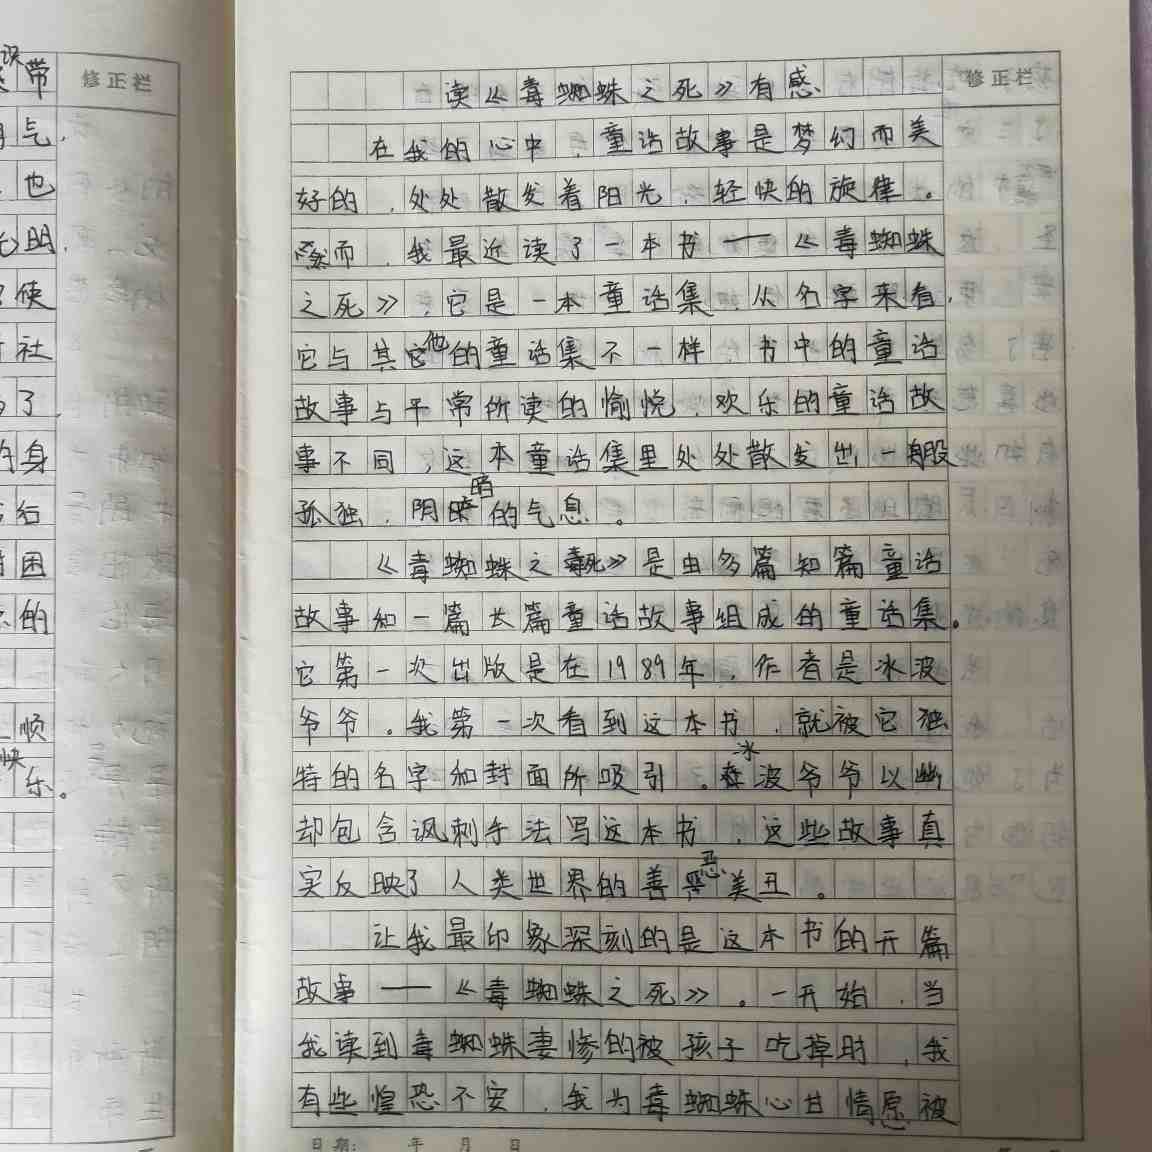 带
修正栏
气，
也
明，
使
社
了
身
行
困
的
顺
快
乐。
修正栏
读《毒蜘蛛之死》有感
在我的心中，童话故事是梦幻而美
好的，处处散发着阳光、轻快的旋律。
然而，我最近读了一本书——《毒蜘蛛
之死》，它是一本童话集，从名字来看，
它与其他的童话集不一样，书中的童话
故事与平常所读的愉悦、欢乐的童话故
事不同，这本童话集里处处散发出一股
孤独、阴暗的气息。
《毒蜘蛛之死》是由多篇知篇童话
故事和一篇长篇童话故事组成的童话集。
它第一次出版是在1989年，作者是冰波
爷爷。我第一次看到这本书，就被它独
特的名字和封面所吸引。冰波爷爷以幽
却包含讽刺手法写这本书，这些故事真
实反映了人类世界的善恶美丑。
让我最印象深刻的是这本书的开篇
故事——《毒蜘蛛之死》。一开始，当
我读到毒蜘蛛妻惨的被孩子吃掉时，我
有些惶恐不安，我为毒蜘蛛心甘情愿被
日期： 年 月 日